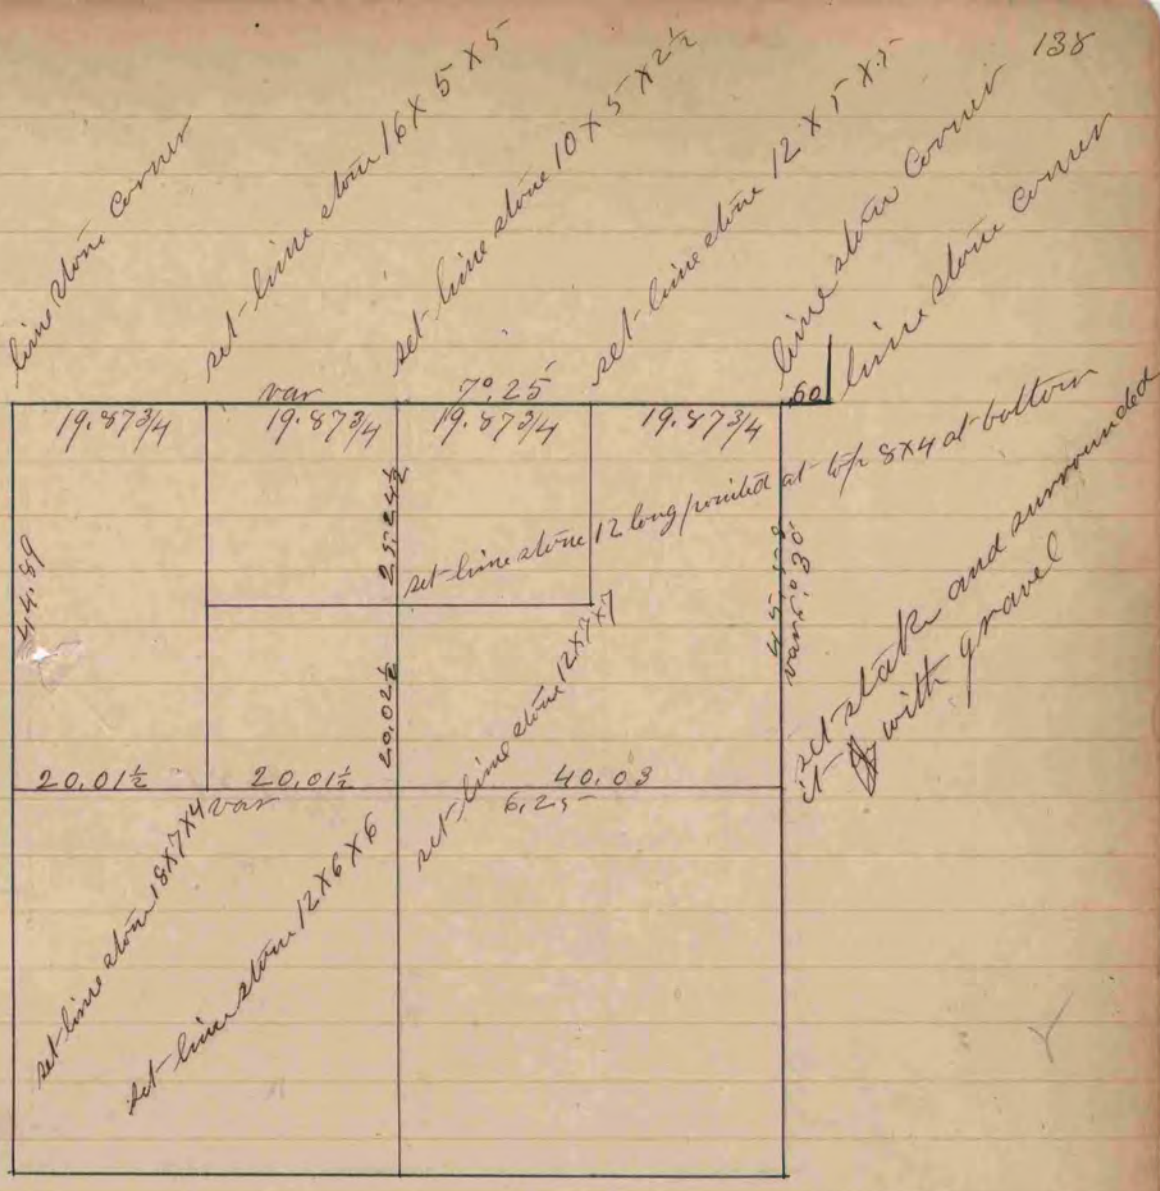 138
lime stone corner
set lime stone 16 X 5 X 5
set lime stone 10 X 5 X 2½
set lime stone 12 X 5 X 5
lime stone Corner
lime stone corner
var 7° 25'
.60
19.87¾ 19.87¾ 19.87¾ 19.87¾
44.89
25.24½
set lime stone 12 long pointed at top 8X4 at bottom
var 5° 30'
set stake and surrounded
it with gravel
20.02½
set lime stone 12X7X7
20.01½ 20.01½ 40.03
var 6.25
set lime stone 18X7X4
set lime stone 12X6X6